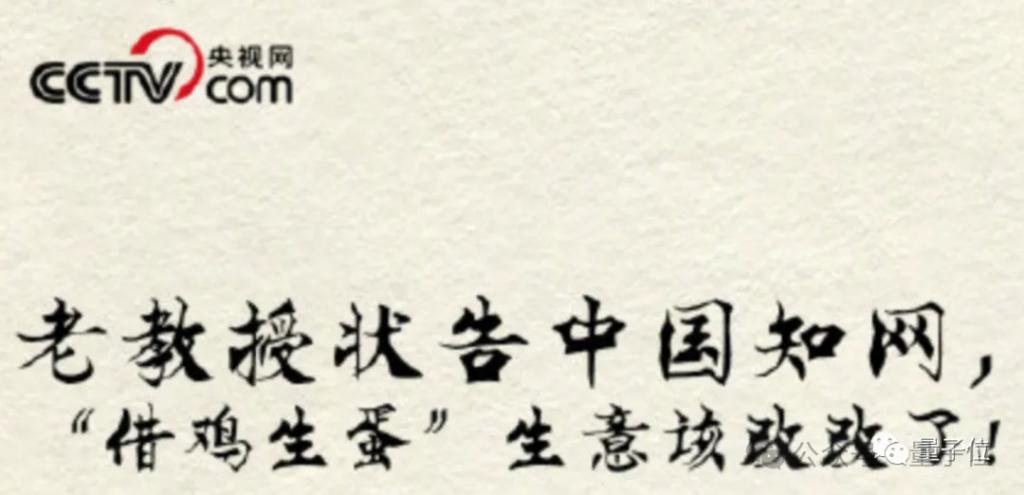 CCTV.com 央视网
老教授状告中国知网，
“借鸡生蛋”生意该改改了！
公众号 量子位
量子位